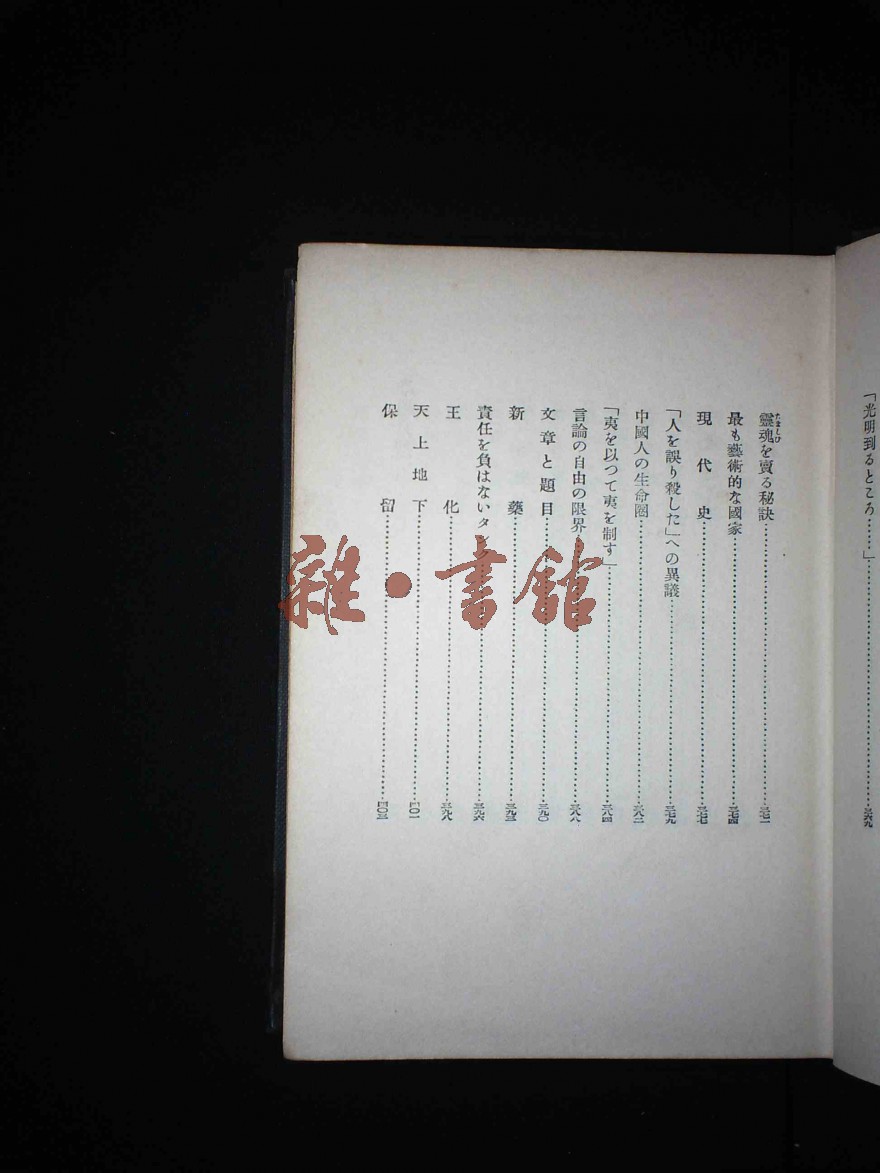 「光明到るところ……」……三六九
靈魂を賣る秘訣……三七一
たましひ
最も藝術的な國家……三七四
現代史……三七七
「人を誤り殺した」への異議……三七九
中國人の生命圈……三八二
「夷を以つて夷を制す」……三八四
言論の自由の限界……三八八
文章と題目……三九〇
新藥……三九三
責任を負はないタ……三九六
王化……三九八
天上地下……四〇一
保留……四〇三
雜·書館